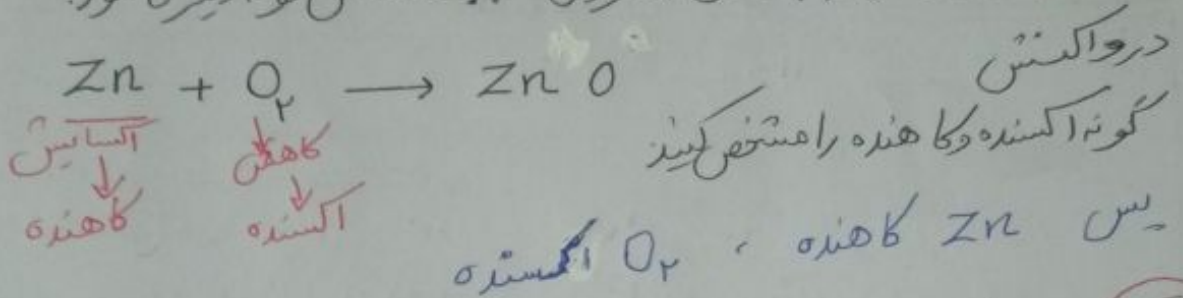 در واکنش
Zn + O₂ → Zn O
گونه اکسنده و کاهنده را مشخص کنید
اکسایش کاهش
↓ ↓
کاهنده اکسنده
پس Zn کاهنده ، O₂ اکسنده